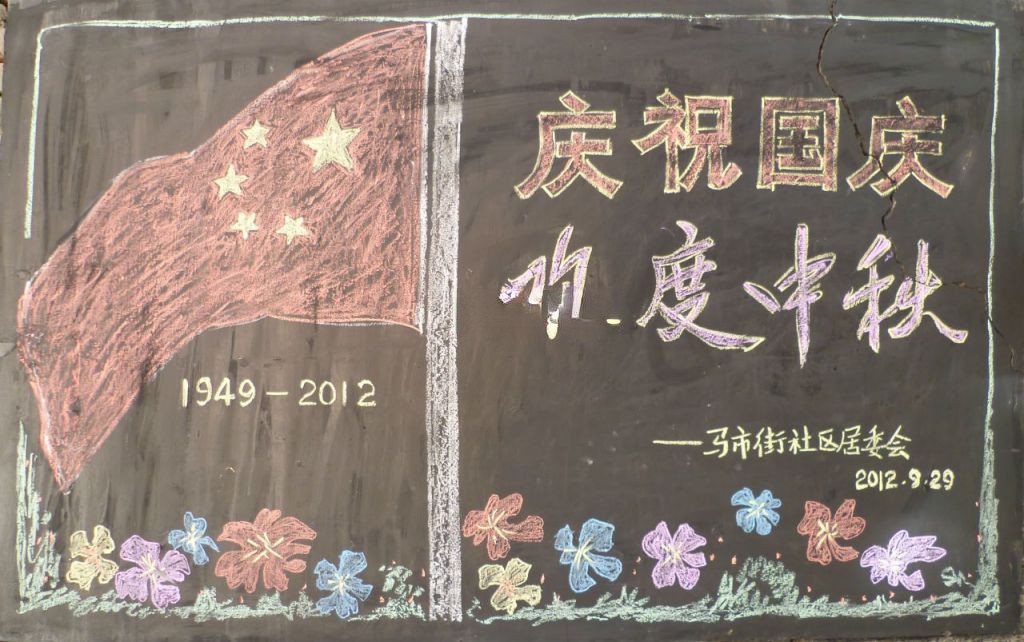 1949-2012
庆祝国庆
欢度中秋
——马市街社区居委会
2012.9.29